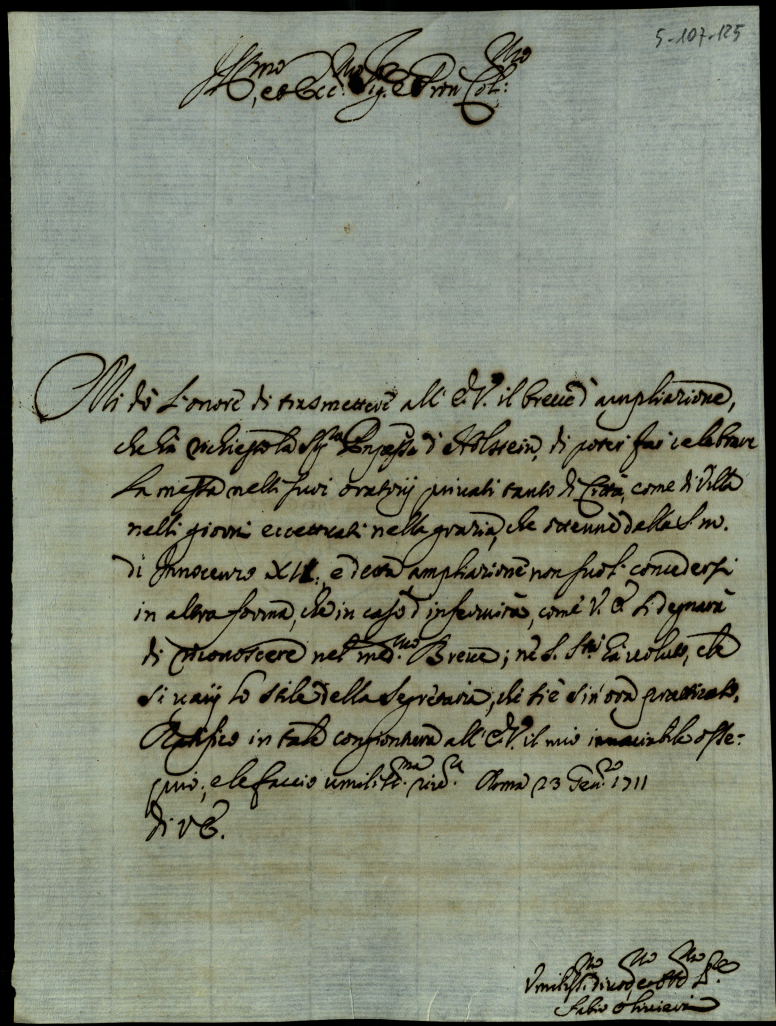 5-107-125
Ill.mo, et Ecc.mo Sig.re e Pron Col.mo
Mi dò l'onore di trasmettere all' E.V. il breve d'ampliazione,
che hà richiesto la Sig.ra Pnpessa d'Holstein, di poter far celebrare
la messa nelli suoi oratorij privati tanto di Città, come di Villa
nelli giorni eccettuati nella grazia, che ottenne dalla S.m.
di Innocenzo XII., e detta ampliazione non suol' concedersi
in altra forma, che in caso d'infermità, come V.E. si degnarà
di riconoscere nel med.mo Breve; nè S. S.tà hà voluto, che
si varij lo stile della Segretaria, che si è sin' ora pratticato.
Ratifico in tale congiontura all' E.V. il mio invariabile osse-
quio, e le faccio umiliss.ma riv.a Roma 23 Gen.ro 1711
Di V.E.
Umiliss.mo divot.mo et obb.mo S.re
Fabio Olivieri